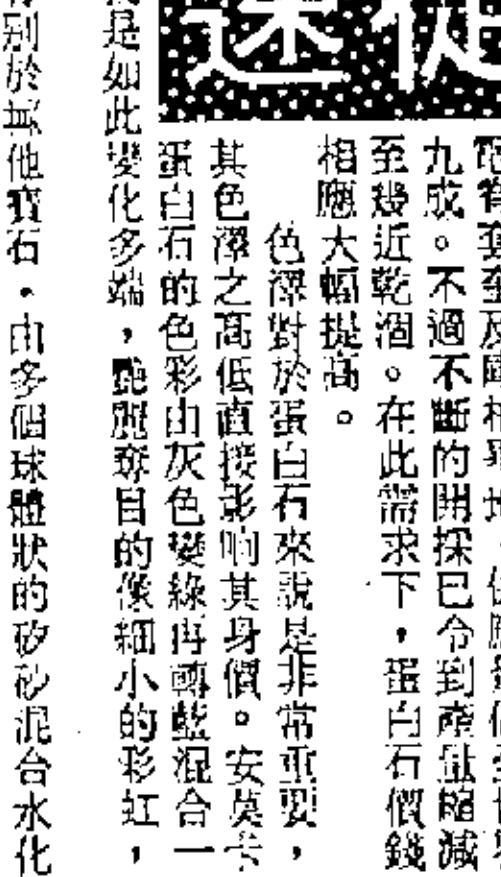 九成。不過不斷的開採已令到產量縮減
至幾近乾涸。在此需求下，蛋白石價錢
相應大幅提高。
色澤對於蛋白石來說是非常重要，
其色澤之高低直接影响其身價。安莫卡
蛋白石的色彩由灰色變綠再轉藍混合一
是如此變化多端，艷麗奪目的像細小的彩虹，
別於其他寶石，由多個球體狀的矽砂混合水化